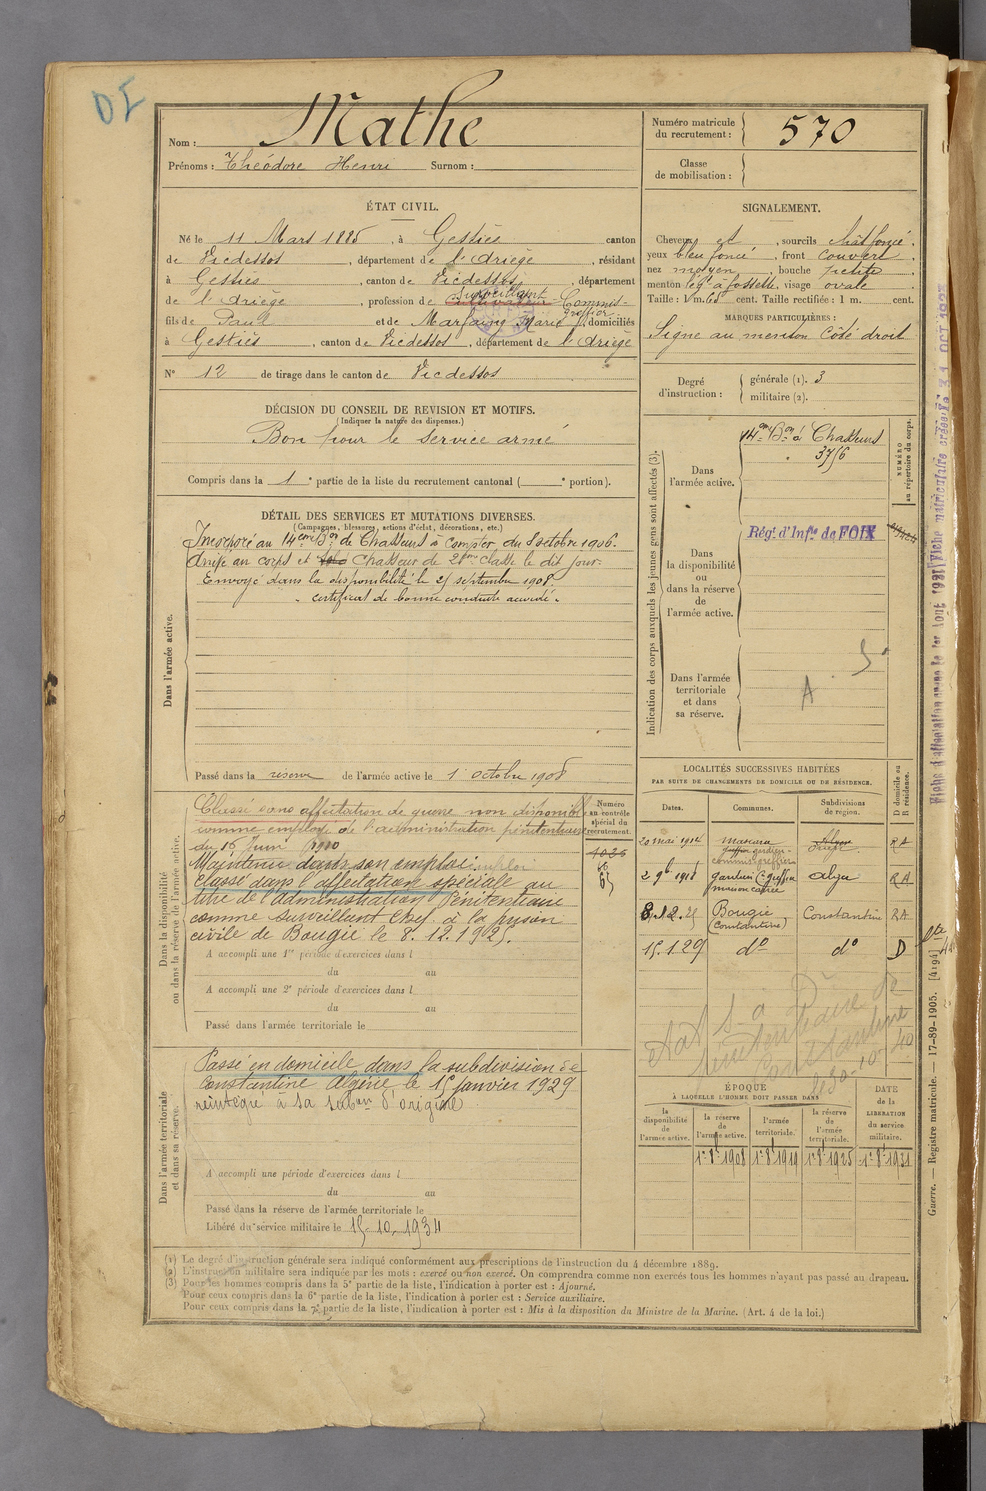 DI
Nom : Mathe
Prénoms : Théodore Henri Surnom :
Numéro matricule du recrutement : 570
Classe de mobilisation :
ÉTAT CIVIL.
Né le 11 Mars 1885, à Gestiès canton
de Vicdessos, département de l'Ariège, résidant
à Gestiès, canton de Vicdessos, département
de l'Ariège, profession de cultivateur surveillant Commis-greffier
fils de Paul et de Marfaing Marie, domiciliés
à Gestiès, canton de Vicdessos, département de l'Ariège
N° 12 de tirage dans le canton de Vicdessos
SIGNALEMENT.
Cheveux et, sourcils chât foncé,
yeux bleu foncé, front couvert,
nez moyen, bouche petite,
menton à fossette, visage ovale.
Taille : 1 m. cent. Taille rectifiée : 1 m. cent.
MARQUES PARTICULIÈRES :
Signe au menton côté droit
Degré d'instruction : générale (1). 3
militaire (2).
DÉCISION DU CONSEIL DE REVISION ET MOTIFS.
(Indiquer la nature des dispenses.)
Bon pour le service armé
Compris dans la 1e partie de la liste du recrutement cantonal ( e portion).
DÉTAIL DES SERVICES ET MUTATIONS DIVERSES.
(Campagnes, blessures, actions d'éclat, décorations, etc.)
Dans l'armée active.
Incorporé au 14ème Bon de Chasseurs à compter du 8 octobre 1906.
Arrivé au corps et Chasseur de 2ème classe le dit jour.
Envoyé dans la disponibilité le 25 septembre 1908.
certificat de bonne conduite accordé.
Passé dans la réserve de l'armée active le 1 octobre 1908
Indication des corps auxquels les jeunes gens sont affectés (3).
NUMÉRO au répertoire du corps.
Dans l'armée active.
14ème Bon à Chasseurs
3756
Dans la disponibilité ou dans la réserve de l'armée active.
Rég. d'Infie de FOIX
Dans l'armée territoriale et dans sa réserve.
A
Dans la disponibilité ou dans la réserve de l'armée active.
Classé sans affectation de guerre non disponible
comme employé de l'administration pénitentiaire
du 16 Juin 1910
Maintenu dans son emploi.
classé dans l'affectation spéciale au
titre de l'administration Pénitentiaire
comme surveillant chef à la prison
civile de Bougie le 8.12.1925.
A accompli une 1re période d'exercices dans l
du au
A accompli une 2e période d'exercices dans l
du au
Passé dans l'armée territoriale le
Numéro au contrôle spécial du recrutement.
63
LOCALITÉS SUCCESSIVES HABITÉES
PAR SUITE DE CHANGEMENTS DE DOMICILE OU DE RÉSIDENCE.
Dates. Communes. Subdivisions de région. D domicile ou R résidence.
20 mai 1914 mascara commis greffier RA
2 9bre 1918 Alger RA
8.12.25 Bougie (Constantine) Constantine RA
15.1.29 do do D
Dans l'armée territoriale et dans sa réserve.
Passé en domicile dans la subdivision de
Constantine Algérie le 15 janvier 1929
réintégré à sa subon d'origine
A accompli une période d'exercices dans l
du au
Passé dans la réserve de l'armée territoriale le
Libéré du service militaire le 15-10-1934
ÉPOQUE
À LAQUELLE L'HOMME DOIT PASSER DANS
DATE de la LIBÉRATION du service militaire.
la disponibilité de l'armée active.
la réserve de l'armée active.
l'armée territoriale.
la réserve de l'armée territoriale.
1r 8e 1908 1r 8e 1919 1r 8e 1925 1r 8e 1931
(1) Le degré d'instruction générale sera indiqué conformément aux prescriptions de l'instruction du 4 décembre 1889.
(2) L'instruction militaire sera indiquée par les mots : exercé ou non exercé. On comprendra comme non exercés tous les hommes n'ayant pas passé au drapeau.
(3) Pour les hommes compris dans la 5e partie de la liste, l'indication à porter est : Ajourné.
Pour ceux compris dans la 6e partie de la liste, l'indication à porter est : Service auxiliaire.
Pour ceux compris dans la 7e partie de la liste, l'indication à porter est : Mis à la disposition du Ministre de la Marine. (Art. 4 de la loi.)
Guerre. — Registre matricule. — 17-89-1905. [4194]